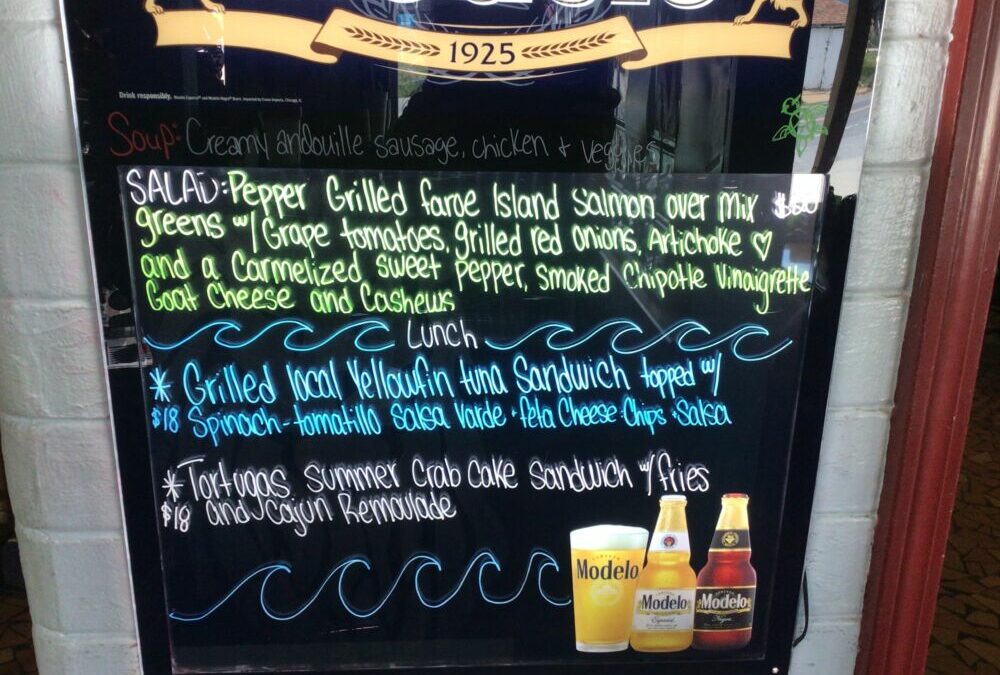 1925
Drink responsibly.
Soup: Creamy andouille sausage, chicken + veggies
SALAD: Pepper Grilled faroe Island Salmon over mix
greens w/ Grape tomatoes, grilled red onions, Artichoke ♡
and a Carmelized sweet pepper, smoked Chipotle Vinaigrette
Goat Cheese and Cashews
Lunch
* Grilled local Yellowfin tuna Sandwich topped w/
$18 Spinach-tomatillo Salsa Varde • feta Cheese • Chips • Salsa
* Tortugas Summer Crab Cake Sandwich w/ fries
$18 and Cajun Remoulade
Modelo
Modelo
Especial
Modelo
Negra